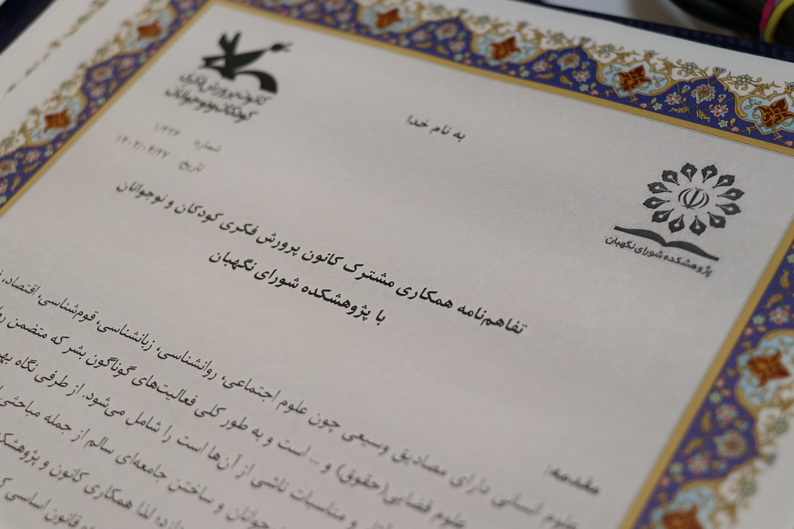 کانون پرورش فکری
کودکان و نوجوانان
به نام خدا
شماره:
تاریخ:
پژوهشکده شورای نگهبان
تفاهم‌نامه همکاری مشترک کانون پرورش فکری کودکان و نوجوانان
با پژوهشکده شورای نگهبان
مقدمه:
علوم انسانی دارای مصادیق وسیعی چون علوم اجتماعی، روانشناسی، زبانشناسی، قوم‌شناسی، اقتصاد،
علوم قضایی(حقوق) و... است و به طور کلی فعالیت‌های گوناگون بشر که متضمن
و مناسبات ناشی از آن‌ها است را شامل می‌شود. از طرفی نگاه
جوانان و ساختن جامعه‌ای سالم از جمله مباحثی
لذا همکاری کانون و
قانون اساسی